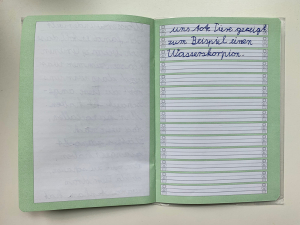 uns tote Tiere gezeigt
zum Beispiel einen
Wasserskorpion.